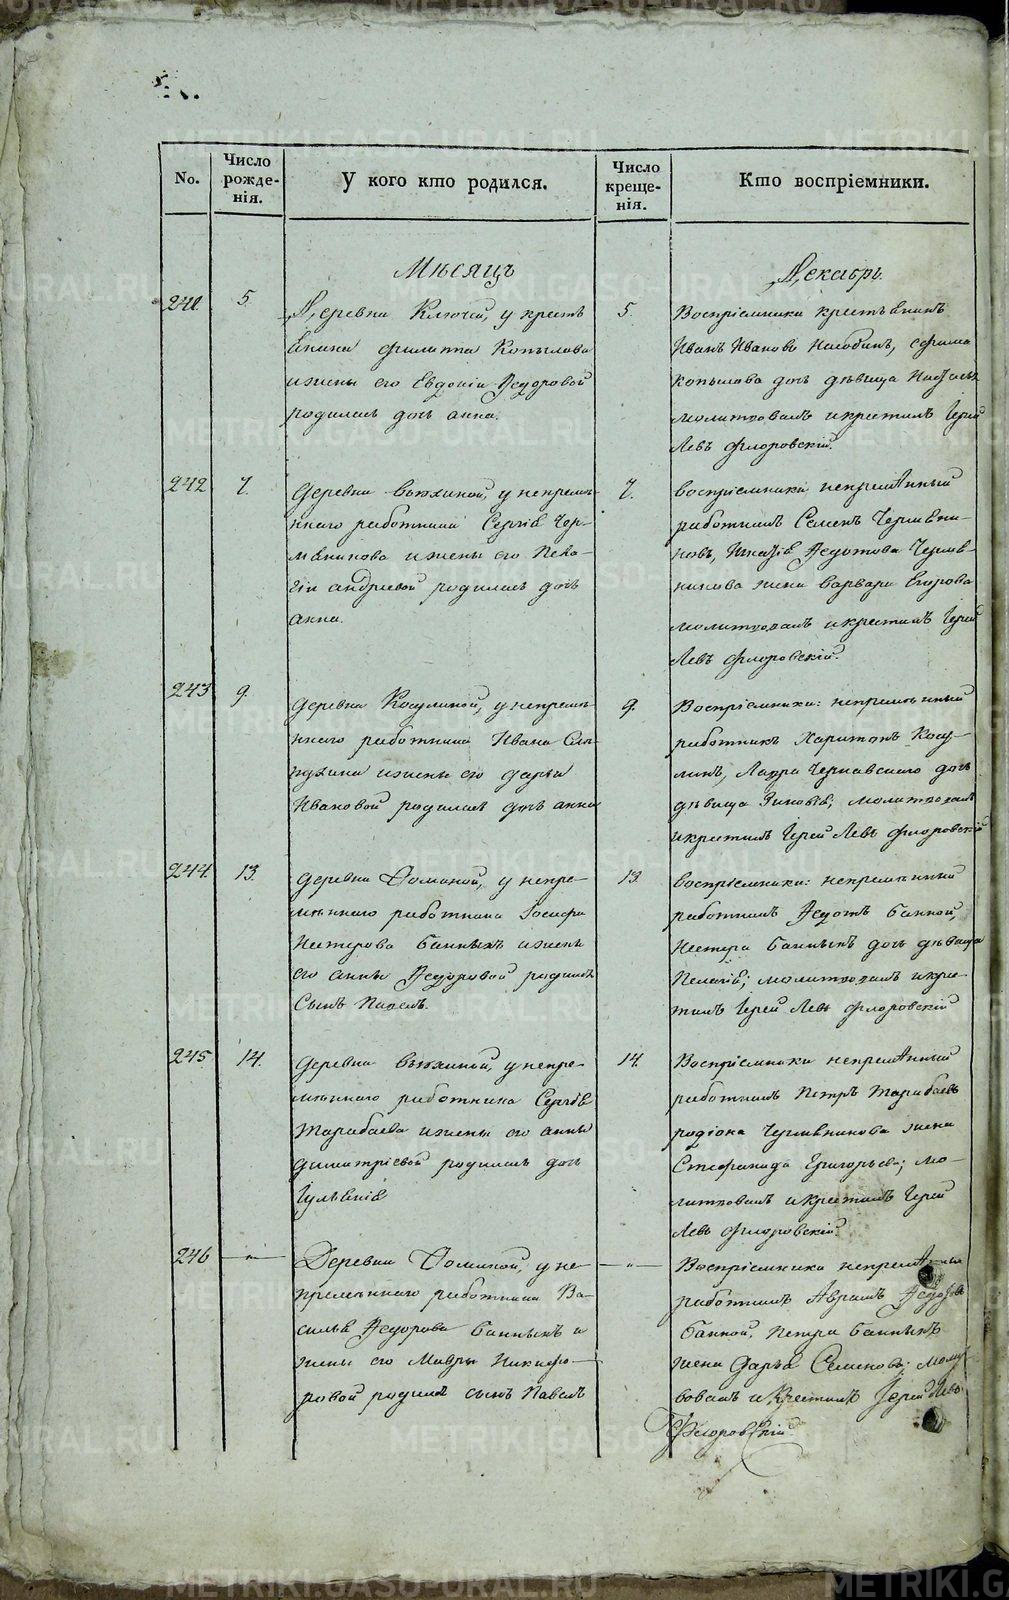 No.
Число рожде-нія.
У кого кто родился.
Число креще-нія.
Кто воспріемники.
Мѣсяцъ
Декабрь
241.
5.
Деревни Ключей, у кресть
янина Филиппа Копылова
и жены его Евдокіи Ѳедоровой
родилась дочь Анна.
5.
Воспріемники крестьянинъ
Иванъ Ивановъ
Копылова дочь дѣвица
молитвовалъ и крестилъ Іерей
Левъ Флоровскій.
242
7.
Деревни у непремѣ-
ннаго работника Сергія Чер-
и жены его Пела-
гіи Андреевой родилась дочь
Анна.
7.
Воспріемники непремѣнный
работникъ Семенъ
Ѳедотова
жена Варвара Егорова
молитвовалъ и крестилъ Іерей
Левъ Флоровскій.
243
9.
Деревни Косулиной, у непремѣ-
ннаго работника Ивана
и жены его Дарьи
Ивановой родилась дочь Анна
9.
Воспріемники: непремѣнный
работникъ Харитонъ Косу-
линъ, дочь
дѣвица Зиновія; молитвовалъ
и крестилъ Іерей Левъ Флоровскій
244.
13.
Деревни у непре-
мѣннаго работника Іосифа
Нестерова Банныхъ и жены
его Анны Ѳедоровой родился
сынъ Павелъ.
13.
Воспріемники: непремѣнный
работникъ Ѳедотъ Банной,
Нестера Банныхъ дочь дѣвица
Пелагія; молитвовалъ и кре-
тилъ Іерей Левъ Флоровскій
245
14.
Деревни у непре-
мѣннаго работника Сергія
Тарабаева и жены его Анны
Димитріевой родилась дочь
Іуліанія
14.
Воспріемники непремѣнный
работникъ Петръ Тарабаевъ
Родіона жена
Стефанида Григорьева; мо-
литвовалъ и крестилъ Іерей
Левъ Флоровскій.
246
— „ —
Деревни у не-
премѣннаго работника Ва-
силья Ѳедорова Банныхъ и
жены его Мавры Никифо-
ровой родился сынъ Павелъ
— „ —
Воспріемники непремѣнный
работникъ Аврамъ Ѳедоровъ
Банной, Петра Банныхъ
жена Дарья Семенова;
вовалъ и крестилъ Іерей Левъ
Флоровскій.
METRIKI.GASO-URAL.RU